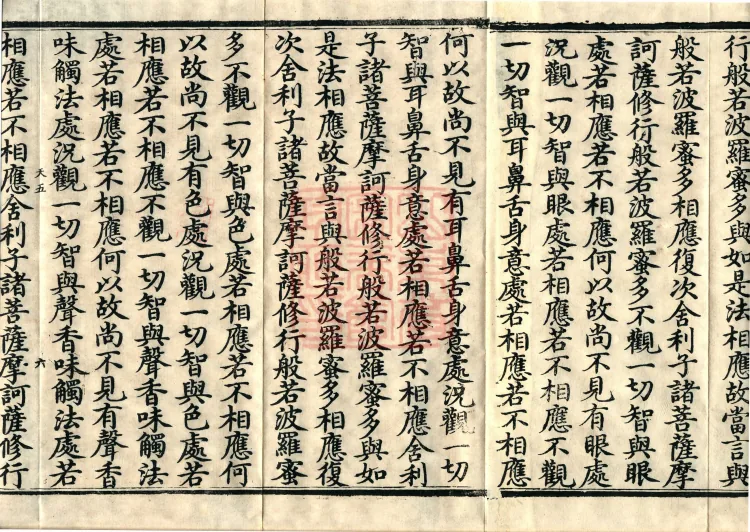 行般若波羅蜜多與如是法相應故當言與
般若波羅蜜多相應復次舍利子諸菩薩摩
訶薩修行般若波羅蜜多不觀一切智與眼
處若相應若不相應何以故尚不見有眼處
況觀一切智與眼處若相應若不相應不觀
一切智與耳鼻舌身意處若相應若不相應
何以故尚不見有耳鼻舌身意處況觀一切
智與耳鼻舌身意處若相應若不相應舍利
子諸菩薩摩訶薩修行般若波羅蜜多與如
是法相應故當言與般若波羅蜜多相應復
次舍利子諸菩薩摩訶薩修行般若波羅蜜
多不觀一切智與色處若相應若不相應何
以故尚不見有色處況觀一切智與色處若
相應若不相應不觀一切智與聲香味觸法
處若相應若不相應何以故尚不見有聲香
味觸法處況觀一切智與聲香味觸法處若
天五 六
相應若不相應舍利子諸菩薩摩訶薩修行